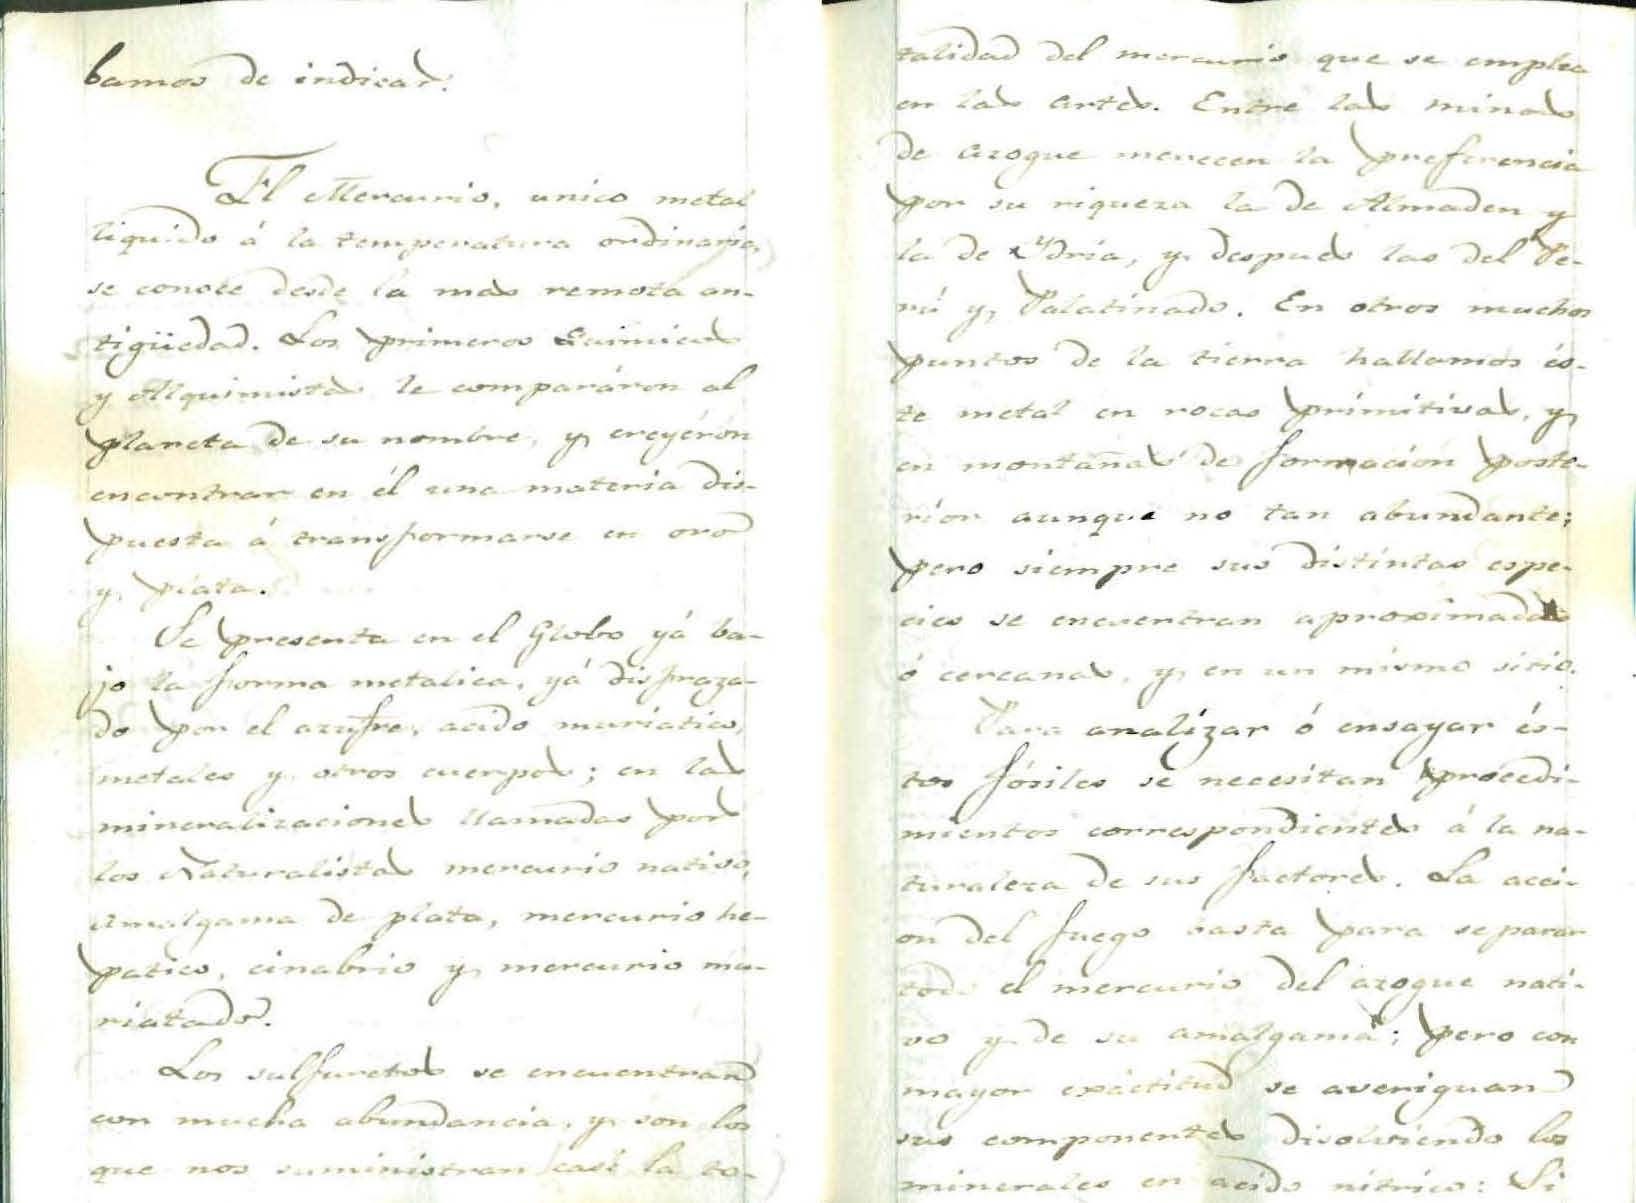 bamos de indicar.
El Mercurio, unico metal
liquido á la temperatura ordinaria,
se conoce desde la mas remota an-
tigüedad. Los primeros Quimicos
y Alquimistas le comparáron al
planeta de su nombre, y creyéron
encontrar en él una materia dis-
puesta á transformarse en oro
y plata.
Se presenta en el Globo yá ba-
jo la forma metalica, yá disfraza-
do por el azufre, acido muriatico,
metales y otros cuerpos; en las
mineralizaciones llamadas por
los Naturalistas mercurio nativo,
amalgama de plata, mercurio he-
patico, cinabrio y mercurio mu-
riatado.
Los sulfuretos se encuentran
con mucha abundancia, y son los
que nos suministran casi la to-
talidad del mercurio que se emplea
en las artes. Entre las minas
de azogue merecen la preferencia
por su riqueza la de Almaden y
la de Ydria, y despues las del Pe-
rú y Palatinado. En otros muchos
puntos de la tierra hallamos és-
te metal en rocas primitivas, y
en montañas de formacion poste-
rior aunque no tan abundante;
pero siempre sus distintas espe-
cies se encuentran aproximadas
ó cercanas, y en un mismo sitio.
Para analizar ó ensayar és-
tos fósiles se necesitan procedi-
mientos correspondientes á la na-
turaleza de sus factores. La acci-
on del fuego basta para separar
todo el mercurio del azogue nati-
vo y de su amalgama; pero con
mayor exáctitud se averiguan
sus componentes disolviendo los
minerales en acido nitrico: Si